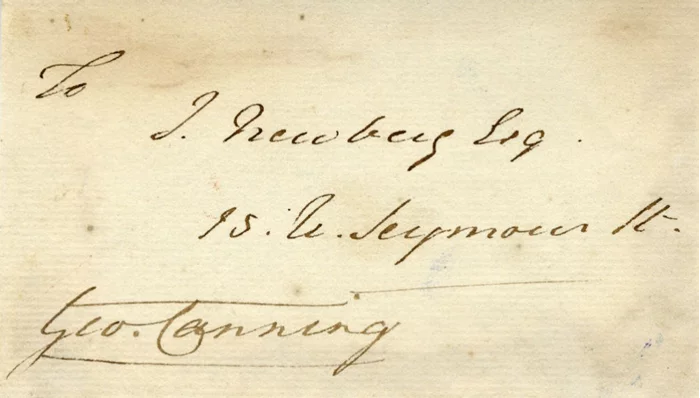 To
J. Newbery Esq.
15. U. Seymour St.
Geo. Canning